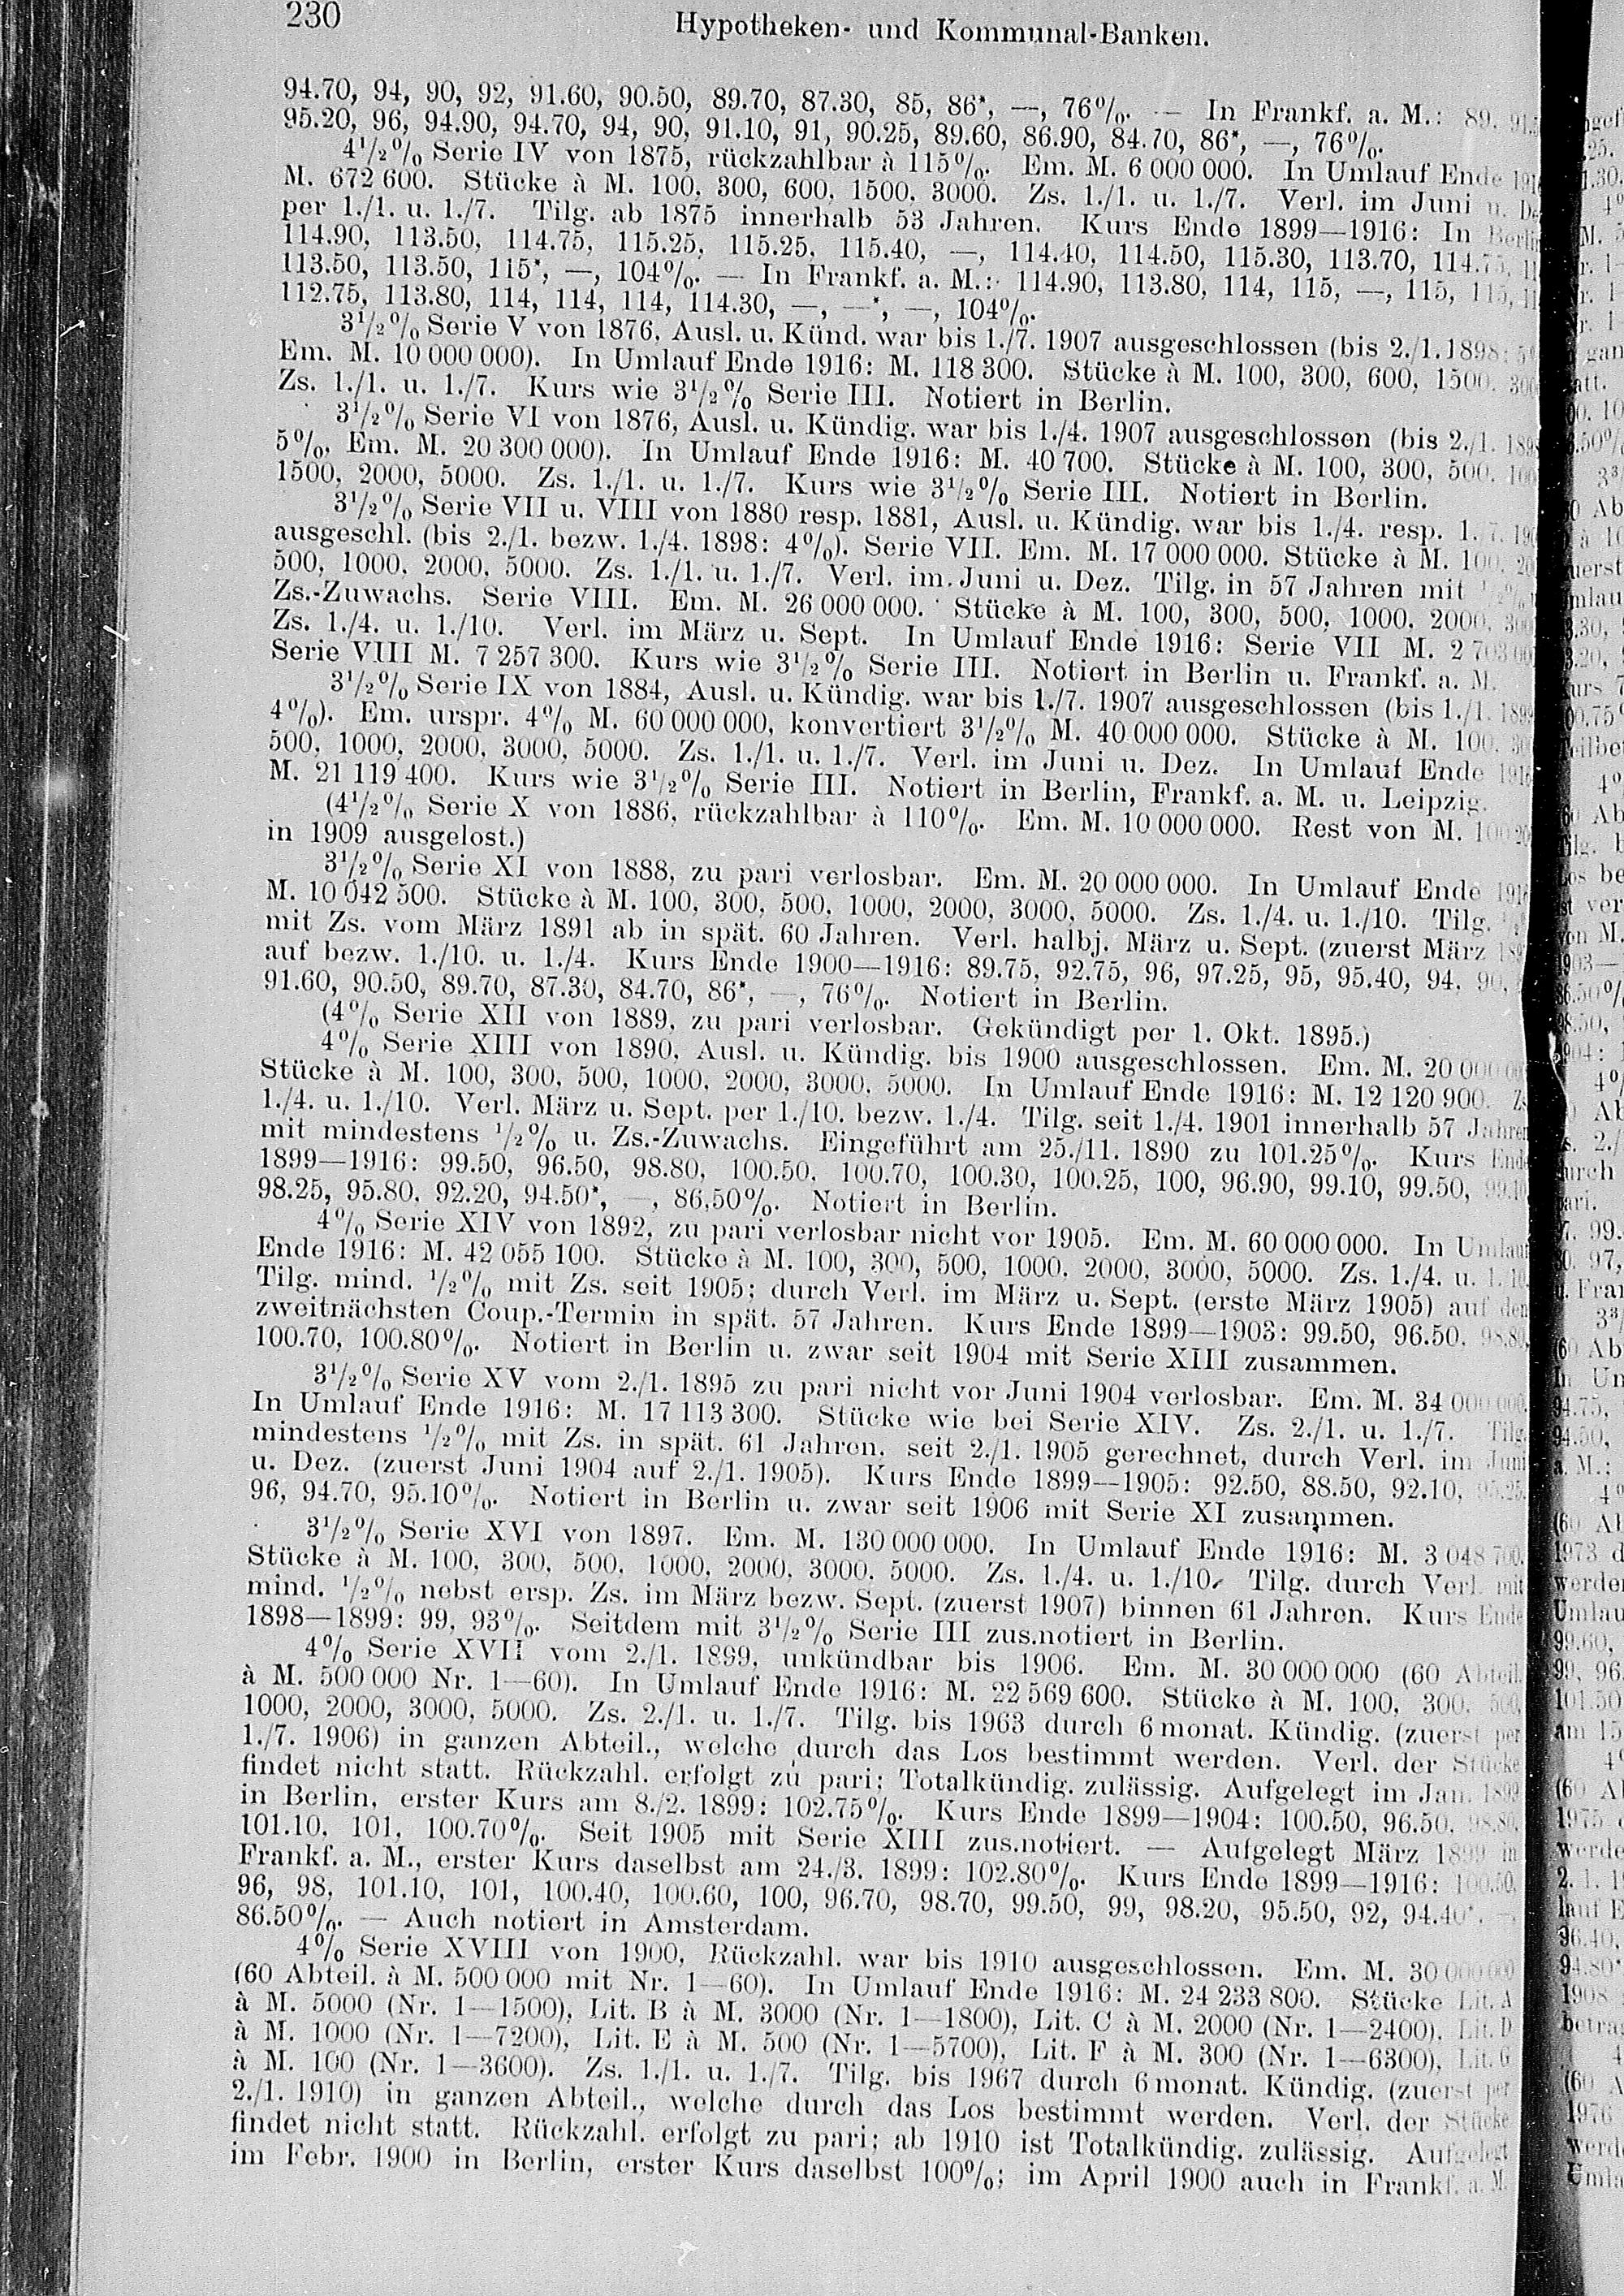 230
Hypotheken- und Kommunal-Banken.
94.70, 94, 90, 92, 91.60, 90.50, 89.70, 87.30, 85, 86*, —, 76%. — In Frankf. a. M.: 89,
95.20, 96, 94.90, 94.70, 94, 90, 91.10, 91, 90.25, 89.60, 86.90, 84.70, 86*, —, 76%.
4½% Serie IV von 1875, rückzahlbar à 115%. Em. M. 6 000 000. In Umlauf Ende 1916
M. 672 600. Stücke à M. 100, 300, 600, 1500, 3000. Zs. 1./1. u. 1./7. Verl. im Juni u.
per 1./1. u. 1./7. Tilg. ab 1875 innerhalb 53 Jahren. Kurs Ende 1899—1916: In Berlin
114.90, 113.50, 114.75, 115.25, 115.25, 115.40, —, 114.40, 114.50, 115.30, 113.70, 114.75,
113.50, 113.50, 115*, —, 104%. — In Frankf. a. M.: 114.90, 113.80, 114, 115, —, 115, 115,
112.75, 113.80, 114, 114, 114, 114.30, —, —*, —, 104%.
3½% Serie V von 1876, Ausl. u. Künd. war bis 1./7. 1907 ausgeschlossen (bis 2./1. 1898: 5%
Em. M. 10 000 000). In Umlauf Ende 1916: M. 118 300. Stücke à M. 100, 300, 600, 1500,
Zs. 1./1. u. 1./7. Kurs wie 3½% Serie III. Notiert in Berlin.
3½% Serie VI von 1876, Ausl. u. Kündig. war bis 1./4. 1907 ausgeschlossen (bis 2./1. 1898
5%, Em. M. 20 300 000). In Umlauf Ende 1916: M. 40 700. Stücke à M. 100, 300, 500,
1500, 2000, 5000. Zs. 1./1. u. 1./7. Kurs wie 3½% Serie III. Notiert in Berlin.
3½% Serie VII u. VIII von 1880 resp. 1881, Ausl. u. Kündig. war bis 1./4. resp. 1./7.
ausgeschl. (bis 2./1. bezw. 1./4. 1898: 4%). Serie VII. Em. M. 17 000 000. Stücke à M. 100,
500, 1000, 2000, 5000. Zs. 1./1. u. 1./7. Verl. im Juni u. Dez. Tilg. in 57 Jahren mit
Zs.-Zuwachs. Serie VIII. Em. M. 26 000 000. Stücke à M. 100, 300, 500, 1000, 2000,
Zs. 1./4. u. 1./10. Verl. im März u. Sept. In Umlauf Ende 1916: Serie VII M.
Serie VIII M. 7 257 300. Kurs wie 3½% Serie III. Notiert in Berlin u. Frankf. a. M.
3½% Serie IX von 1884, Ausl. u. Kündig. war bis 1./7. 1907 ausgeschlossen (bis 1./1.
4%). Em. urspr. 4% M. 60 000 000, konvertiert 3½% M. 40 000 000. Stücke à M. 100,
500, 1000, 2000, 3000, 5000. Zs. 1./1. u. 1./7. Verl. im Juni u. Dez. In Umlauf Ende 1916
M. 21 119 400. Kurs wie 3½% Serie III. Notiert in Berlin, Frankf. a. M. u. Leipzig.
(4½% Serie X von 1886, rückzahlbar à 110%. Em. M. 10 000 000. Rest von M.
in 1909 ausgelost.)
3½% Serie XI von 1888, zu pari verlosbar. Em. M. 20 000 000. In Umlauf Ende 1916
M. 10 042 500. Stücke à M. 100, 300, 500, 1000, 2000, 3000, 5000. Zs. 1./4. u. 1./10. Tilg.
mit Zs. vom März 1891 ab in spät. 60 Jahren. Verl. halbj. März u. Sept. (zuerst März
auf bezw. 1./10. u. 1./4. Kurs Ende 1900—1916: 89.75, 92.75, 96, 97.25, 95, 95.40, 94, 90,
91.60, 90.50, 89.70, 87.30, 84.70, 86*, —, 76%. Notiert in Berlin.
(4% Serie XII von 1889, zu pari verlosbar. Gekündigt per 1. Okt. 1895.)
4% Serie XIII von 1890, Ausl. u. Kündig. bis 1900 ausgeschlossen. Em. M. 20 000 000
Stücke à M. 100, 300, 500, 1000, 2000, 3000, 5000. In Umlauf Ende 1916: M. 12 120 900. Zs.
1./4. u. 1./10. Verl. März u. Sept. per 1./10. bezw. 1./4. Tilg. seit 1./4. 1901 innerhalb 57 Jahren
mit mindestens ½% u. Zs.-Zuwachs. Eingeführt am 25./11. 1890 zu 101.25%. Kurs Ende
1899—1916: 99.50, 96.50, 98.80, 100.50, 100.70, 100.30, 100.25, 100, 96.90, 99.10, 99.50, 99.10,
98.25, 95.80, 92.20, 94.50*, —, 86.50%. Notiert in Berlin.
4% Serie XIV von 1892, zu pari verlosbar nicht vor 1905. Em. M. 60 000 000. In Umlauf
Ende 1916: M. 42 055 100. Stücke à M. 100, 300, 500, 1000, 2000, 3000, 5000. Zs. 1./4. u. 1./10.
Tilg. mind. ½% mit Zs. seit 1905; durch Verl. im März u. Sept. (erste März 1905) auf den
zweitnächsten Coup.-Termin in spät. 57 Jahren. Kurs Ende 1899—1903: 99.50, 96.50, 98.80,
100.70, 100.80%. Notiert in Berlin u. zwar seit 1904 mit Serie XIII zusammen.
3½% Serie XV vom 2./1. 1895 zu pari nicht vor Juni 1904 verlosbar. Em. M. 34 000 000.
In Umlauf Ende 1916: M. 17 113 300. Stücke wie bei Serie XIV. Zs. 2./1. u. 1./7. Tilg.
mindestens ½% mit Zs. in spät. 61 Jahren, seit 2./1. 1905 gerechnet, durch Verl. im Juni
u. Dez. (zuerst Juni 1904 auf 2./1. 1905). Kurs Ende 1899—1905: 92.50, 88.50, 92.10, 95.25,
96, 94.70, 95.10%. Notiert in Berlin u. zwar seit 1906 mit Serie XI zusammen.
3½% Serie XVI von 1897. Em. M. 130 000 000. In Umlauf Ende 1916: M. 3 048 700.
Stücke à M. 100, 300, 500, 1000, 2000, 3000, 5000. Zs. 1./4. u. 1./10. Tilg. durch Verl. mit
mind. ½% nebst ersp. Zs. im März bezw. Sept. (zuerst 1907) binnen 61 Jahren. Kurs Ende
1898—1899: 99, 93%. Seitdem mit 3½% Serie III zus.notiert in Berlin.
4% Serie XVII vom 2./1. 1899, unkündbar bis 1906. Em. M. 30 000 000 (60 Abteil.
à M. 500 000 Nr. 1—60). In Umlauf Ende 1916: M. 22 569 600. Stücke à M. 100, 300, 500,
1000, 2000, 3000, 5000. Zs. 2./1. u. 1./7. Tilg. bis 1963 durch 6 monat. Kündig. (zuerst per
1./7. 1906) in ganzen Abteil., welche durch das Los bestimmt werden. Verl. der Stücke
findet nicht statt. Rückzahl. erfolgt zu pari; Totalkündig. zulässig. Aufgelegt im Jan. 1899
in Berlin, erster Kurs am 8./2. 1899: 102.75%. Kurs Ende 1899—1904: 100.50, 96.50, 98.80,
101.10, 101, 100.70%. Seit 1905 mit Serie XIII zus.notiert. — Aufgelegt März 1899 in
Frankf. a. M., erster Kurs daselbst am 24./3. 1899: 102.80%. Kurs Ende 1899—1916: 100.50,
96, 98, 101.10, 101, 100.40, 100.60, 100, 96.70, 98.70, 99.50, 99, 98.20, 95.50, 92, 94.40*, —,
86.50%. — Auch notiert in Amsterdam.
4% Serie XVIII von 1900, Rückzahl. war bis 1910 ausgeschlossen. Em. M. 30 000 000
(60 Abteil. à M. 500 000 mit Nr. 1—60). In Umlauf Ende 1916: M. 24 233 800. Stücke Lit. A
à M. 5000 (Nr. 1—1500), Lit. B à M. 3000 (Nr. 1—1800), Lit. C à M. 2000 (Nr. 1—2400), Lit. D
à M. 1000 (Nr. 1—7200), Lit. E à M. 500 (Nr. 1—5700), Lit. F à M. 300 (Nr. 1—6300), Lit. G
à M. 100 (Nr. 1—3600). Zs. 1./1. u. 1./7. Tilg. bis 1967 durch 6 monat. Kündig. (zuerst per
2./1. 1910) in ganzen Abteil., welche durch das Los bestimmt werden. Verl. der Stücke
findet nicht statt. Rückzahl. erfolgt zu pari; ab 1910 ist Totalkündig. zulässig. Aufgelegt
im Febr. 1900 in Berlin, erster Kurs daselbst 100%; im April 1900 auch in Frankf. a. M.